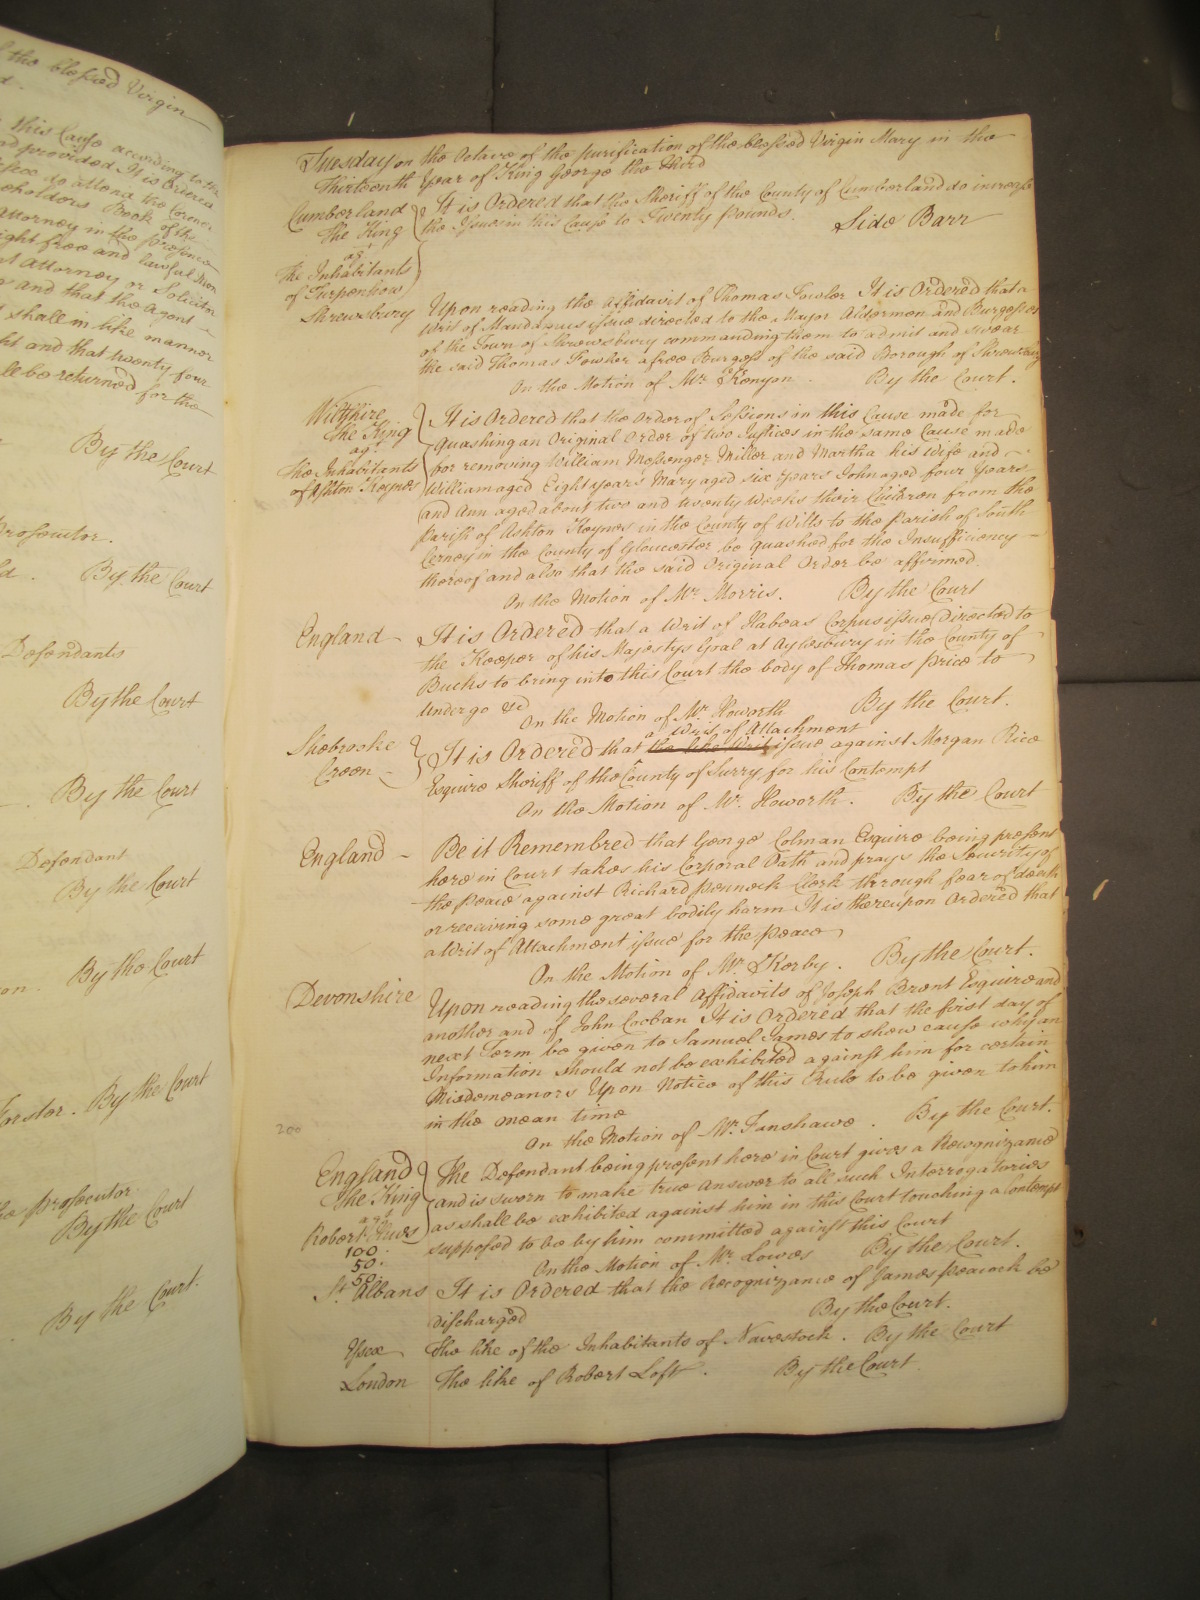 the blessed Virgin
this Cause according to the
and provided It is Ordered
to attend the Coroner
holders Book of the
Attorney in the presence
right free and lawful Men
Attorney or Solicitor
and that the Agent
shall in like manner
and that twenty four
be returned for the
By the Court
Prosecutor.
By the Court
Defendants
By the Court
By the Court
Defendant
By the Court
By the Court
Forster. By the Court
Prosecutor
By the Court
By the Court.
Tuesday on the Octave of the purification of the blessed Virgin Mary in the
Thirteenth Year of King George the Third
Cumberland It is Ordered that the Sheriff of the County of Cumberland do increase
The King the Issues in this Cause to Twenty pounds. Side Barr
agt
The Inhabitants
of Turpenhow
Shrewsbury Upon reading the Affidavit of Thomas Fowler It is Ordered that a
Writ of Mandamus issue directed to the Mayor Aldermen and Burgesses
of the Town of Shrewsbury commanding them to admit and swear
the said Thomas Fowker a free Burgess of the said Borough of Shrewsbury
On the Motion of Mr. Kenyon. By the Court.
Wiltshire It is Ordered that the Order of Sessions in this Cause made for
The King quashing an Original Order of two Justices in the same Cause made
agt for removing William Messenger Miller and Martha his Wife and
The Inhabitants William aged Eight years Mary aged six years John aged four years
of Ashton Keynes and Ann aged about two and twenty weeks their Children from the
parish of Ashton Keynes in the County of Wilts to the parish of South
Cerney in the County of Gloucester be quashed for the Insufficiency
thereof and also that the said Original Order be affirmed.
On the Motion of Mr. Morris. By the Court
England - It is Ordered that a Writ of Habeas Corpus issue directed to
the Keeper of his Majestys Goal at Aylesbury in the County of
Bucks to bring into this Court the body of Thomas price to
undergo &c
On the Motion of Mr. Howorth By the Court.
a Writ of Attachment
Shebrooke It is Ordered that the like Writ issue against Morgan Rice
Creen - Esquire Sheriff of the County of Surry for his Contempt
On the Motion of Mr. Howorth. By the Court
England - Be it Remembred that George Colman Esquire being present
here in Court takes his Corporal Oath and prays the Security of
the peace against Richard pennock Clerk through fear of death
or receiving some great bodily harm It is thereupon Ordered that
a Writ of Attachment issue for the peace
On the Motion of Mr. Kerby. By the Court.
Devonshire Upon reading the several Affidavits of Joseph Brent Esquire and
another and of John Cooban It is Ordered that the first day of
next Term be given to Samuel James to shew cause why an
Information should not be exhibited against him for certain
Misdemeanors Upon Notice of this Rule to be given to him
in the mean time
On the Motion of Mr. Fanshawe. By the Court.
200
England The Defendant being present here in Court gives a Recognizance
The King and is sworn to make true Answer to all such Interrogatories
agt as shall be exhibited against him in this Court touching a Contempt
Robert supposed to be by him committed against this Court
100 On the Motion of Mr. Lowes By the Court.
50.
50.
St. Albans It is Ordered that the Recognizance of James peacock be
discharged By the Court.
Essex The like of the Inhabitants of Navestock. By the Court
London The like of Robert Loft. By the Court